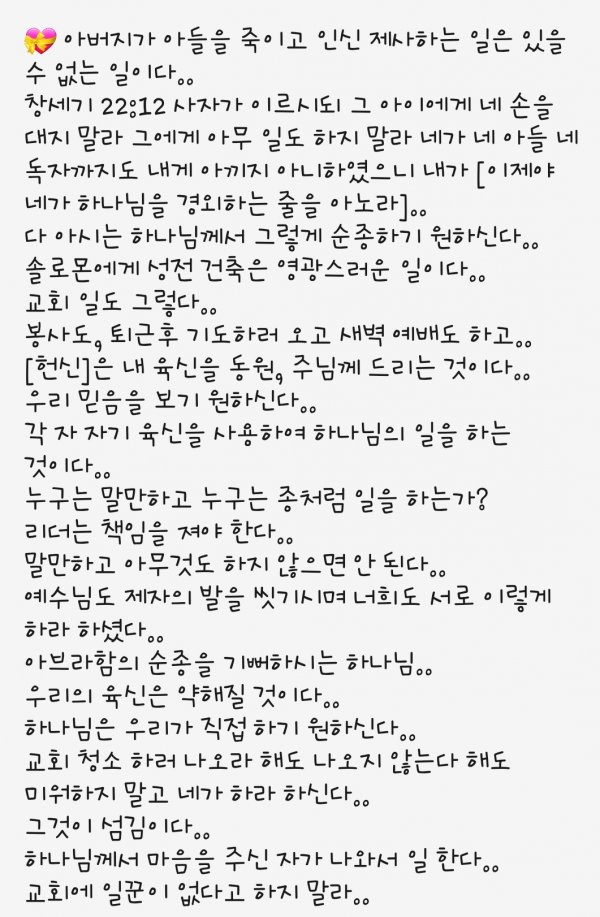 💝 아버지가 아들을 죽이고 인신 제사하는 일은 있을
수 없는 일이다..
창세기 22:12 사자가 이르시되 그 아이에게 네 손을
대지 말라 그에게 아무 일도 하지 말라 네가 네 아들 네
독자까지도 내게 아끼지 아니하였으니 내가 [이제야
네가 하나님을 경외하는 줄을 아노라]..
다 아시는 하나님께서 그렇게 순종하기 원하신다..
솔로몬에게 성전 건축은 영광스러운 일이다..
교회 일도 그렇다..
봉사도, 퇴근후 기도하러 오고 새벽 예배도 하고..
[헌신]은 내 육신을 동원, 주님께 드리는 것이다..
우리 믿음을 보기 원하신다..
각 자 자기 육신을 사용하여 하나님의 일을 하는
것이다..
누구는 말만하고 누구는 종처럼 일을 하는가?
리더는 책임을 져야 한다..
말만하고 아무것도 하지 않으면 안 된다..
예수님도 제자의 발을 씻기시며 너희도 서로 이렇게
하라 하셨다..
아브라함의 순종을 기뻐하시는 하나님..
우리의 육신은 약해질 것이다..
하나님은 우리가 직접 하기 원하신다..
교회 청소 하러 나오라 해도 나오지 않는다 해도
미워하지 말고 네가 하라 하신다..
그것이 섬김이다..
하나님께서 마음을 주신 자가 나와서 일 한다..
교회에 일꾼이 없다고 하지 말라..